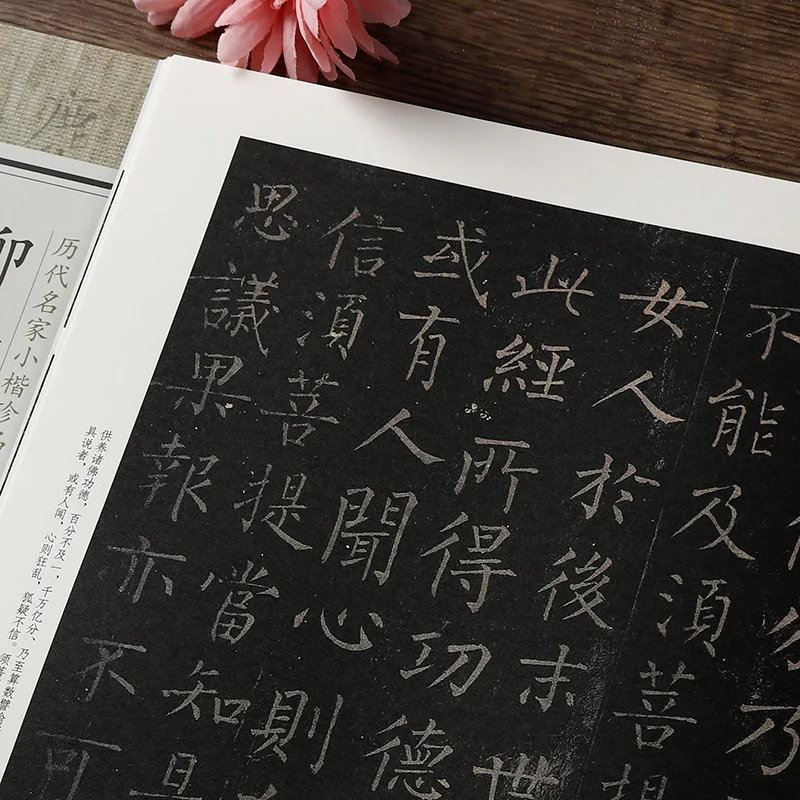 分乃
不能及須菩提
女人於後末世
此經所得功德
或有人聞心則
信須菩提當知是
思議果報亦不可
供养诸佛功德，百分不及一，千万亿分、乃至算数譬喻
具说者，或有人闻，心则狂乱，狐疑不信。须菩
历代名家小楷珍